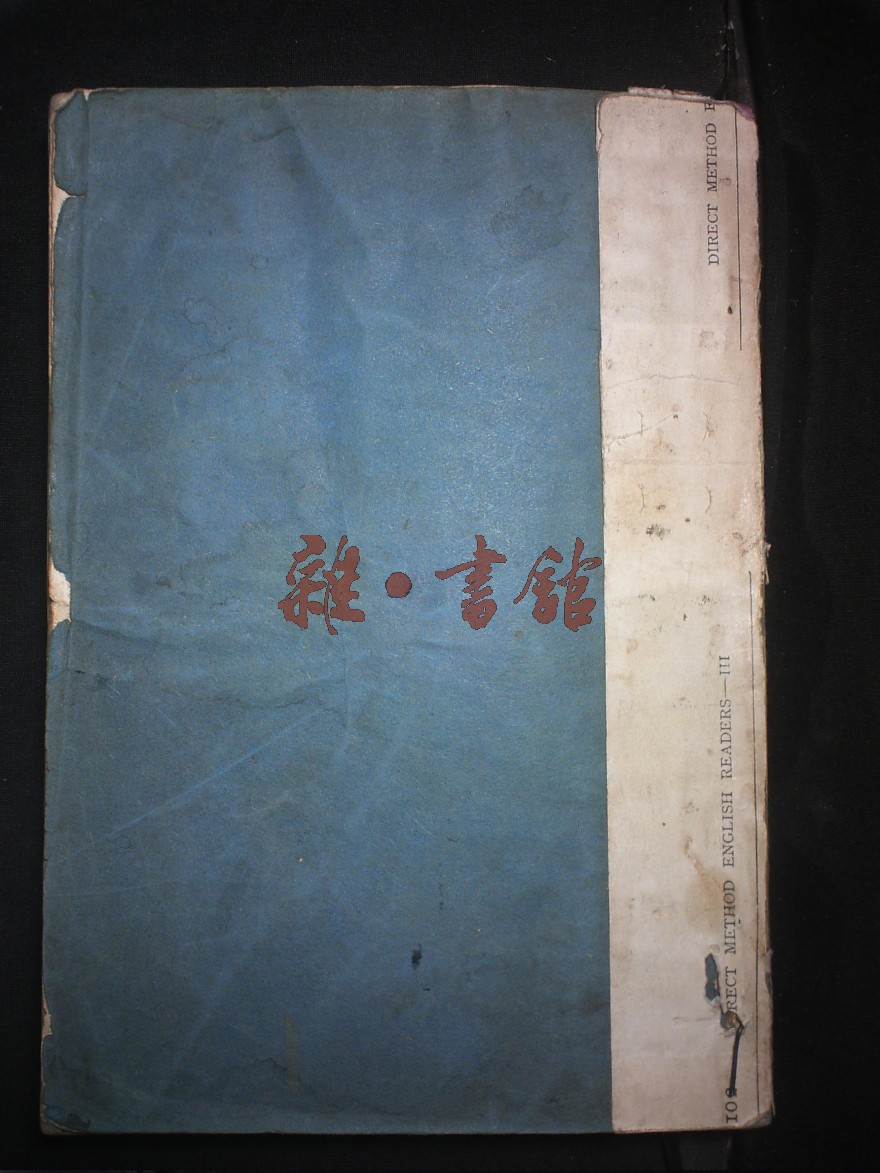 雜•書館
DIRECT METHOD
RECT METHOD ENGLISH READERS—III